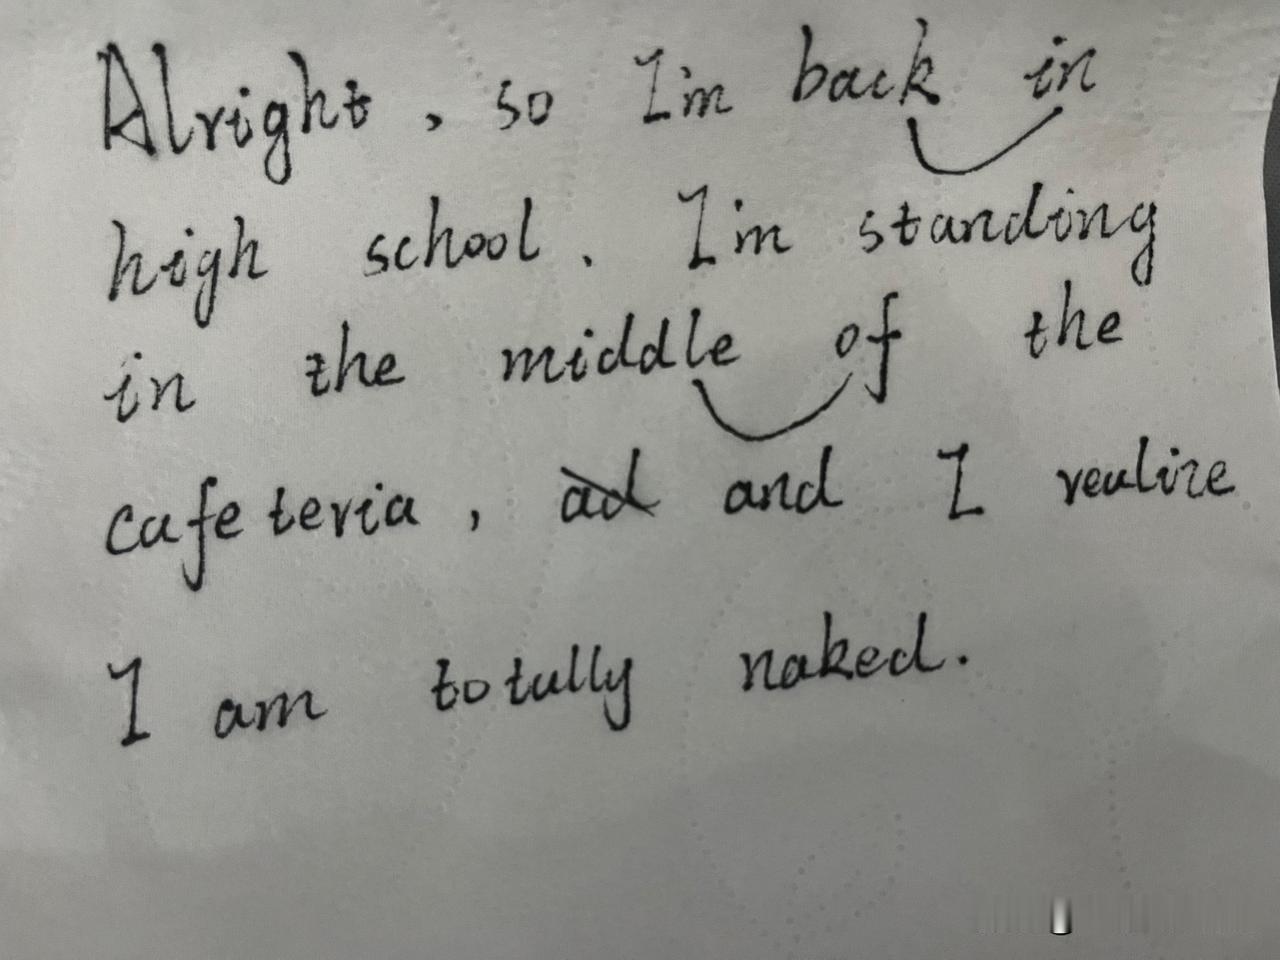 Alright, so I'm back in
high school. I'm standing
in the middle of the
cafeteria, ad and I realize
I am totally naked.